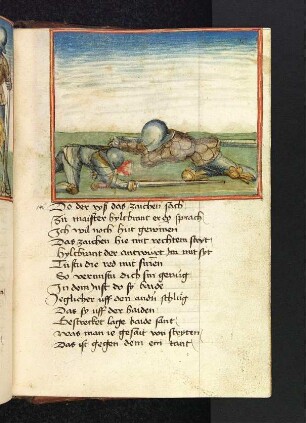 Do der roß das zaichen sach
Zu maister hyltbrant er do sprach
Ich wil noch hut gewinen
Das zaichen hie mit rechtem stryt
Hyltbrant der antwurt Im mit syt
Tustu die red mit sinen
So vermustu dich sin genug
In dem lust do so baide
Jeglicher uff den andn schlug
Das so uff der haiden
Bestrecket lage baide sant
was man ie gesait von stryten
Das ist gegen dem ein tant